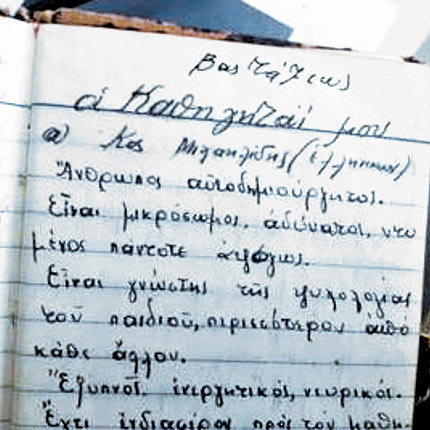 οἱ Καθηγηταί μου
α) Κος Μιχαηλίδης (ἑλληνικῶν)
Ἄνθρωπος αὐτοδημιούργητος.
Εἶναι μικρόσωμος, ἀδύνατος, ντυ
μένος πάντοτε
Εἶναι γνώστης τῆς ψυχολογίας
τοῦ παιδιοῦ, περισσότερον ἀπό
κάθε ἄλλον.
Ἔξυπνος, ἐνεργητικός, νευρικός.
Ἔχει ἐνδιαφέρον πρός τόν μαθη-